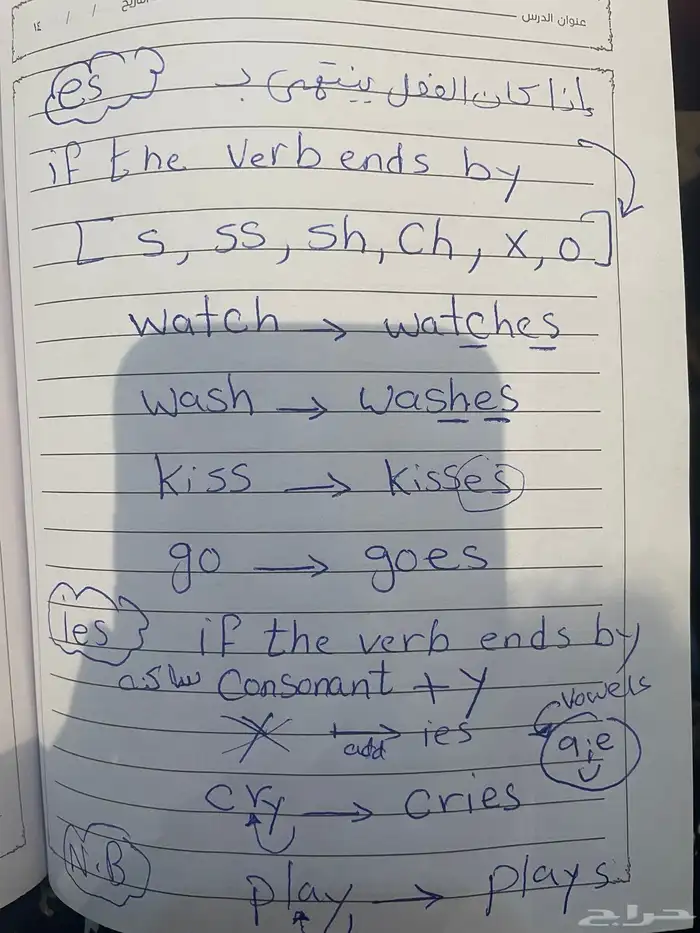 عنوان الدرس التاريخ / / ١٤
إذا كان الفعل ينتهي بـ es
if the verb ends by
[ s, ss, sh, ch, x, o ]
watch → watches
wash → washes
kiss → kisses
go → goes
ies if the verb ends by
consonant + y
vowels
y → add ies
a,e
cry → cries
N.B
play → plays
حراج